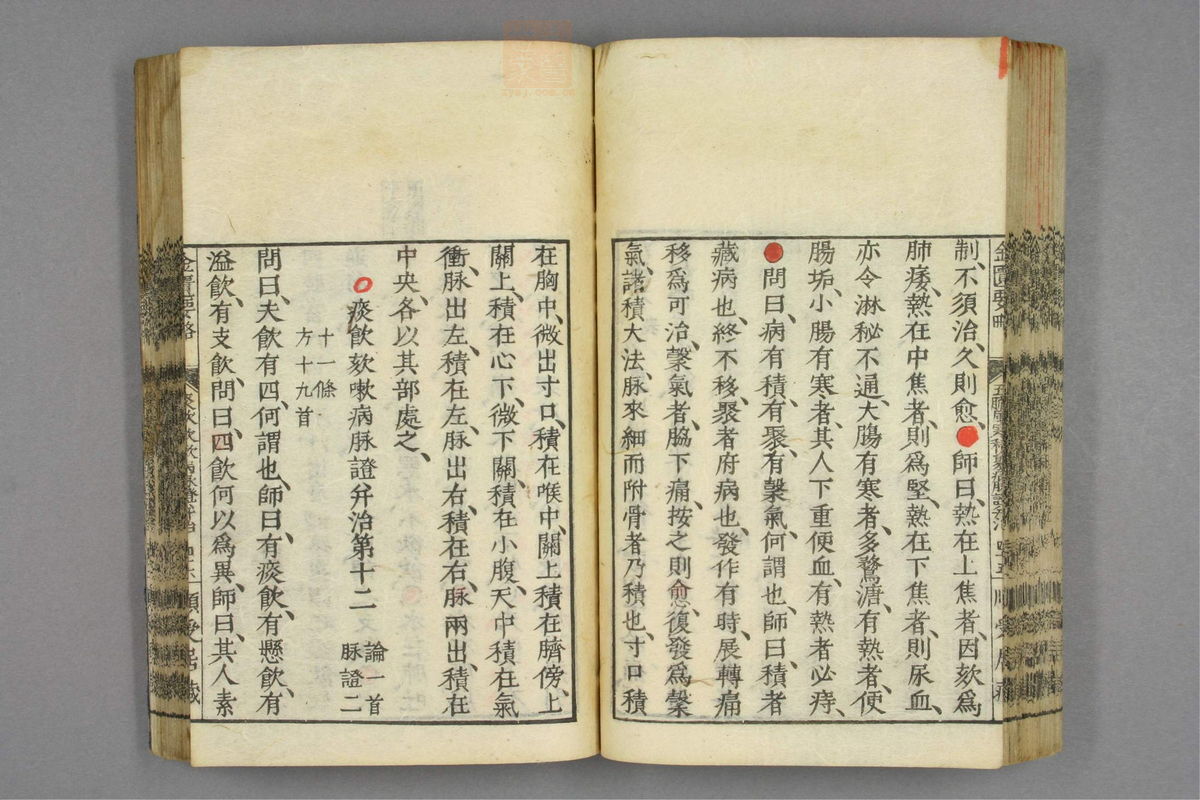 制、不須治、久則愈、師曰、熱在上焦者、因欬爲
肺痿、熱在中焦者、則爲堅、熱在下焦者、則尿血、
亦令淋秘不通、大腸有寒者、多鶩溏、有熱者、便
腸垢、小腸有寒者、其人下重便血、有熱者必痔、
問曰、病有積、有聚、有檕氣、何謂也、師曰、積者
藏病也、終不移、聚者府病也、發作有時、展轉痛
移爲可治、檕氣者、脇下痛、按之則愈、復發爲檕
氣、諸積大法、脉來細而附骨者乃積也、寸口積
在胸中、微出寸口、積在喉中、關上積在臍傍、上
關上、積在心下、微下關、積在小腹、尺中積在氣
衝、脉出左、積在左、脉出右、積在右、脉兩出、積在
中央、各以其部處之、
痰飲欬嗽病脉證并治第十二
論一首
脉證二
十一條
方十九首
問曰、夫飲有四、何謂也、師曰、有痰飲、有懸飲、有
溢飲、有支飲、問曰、四飲何以爲異、師曰、其人素
金匱要略